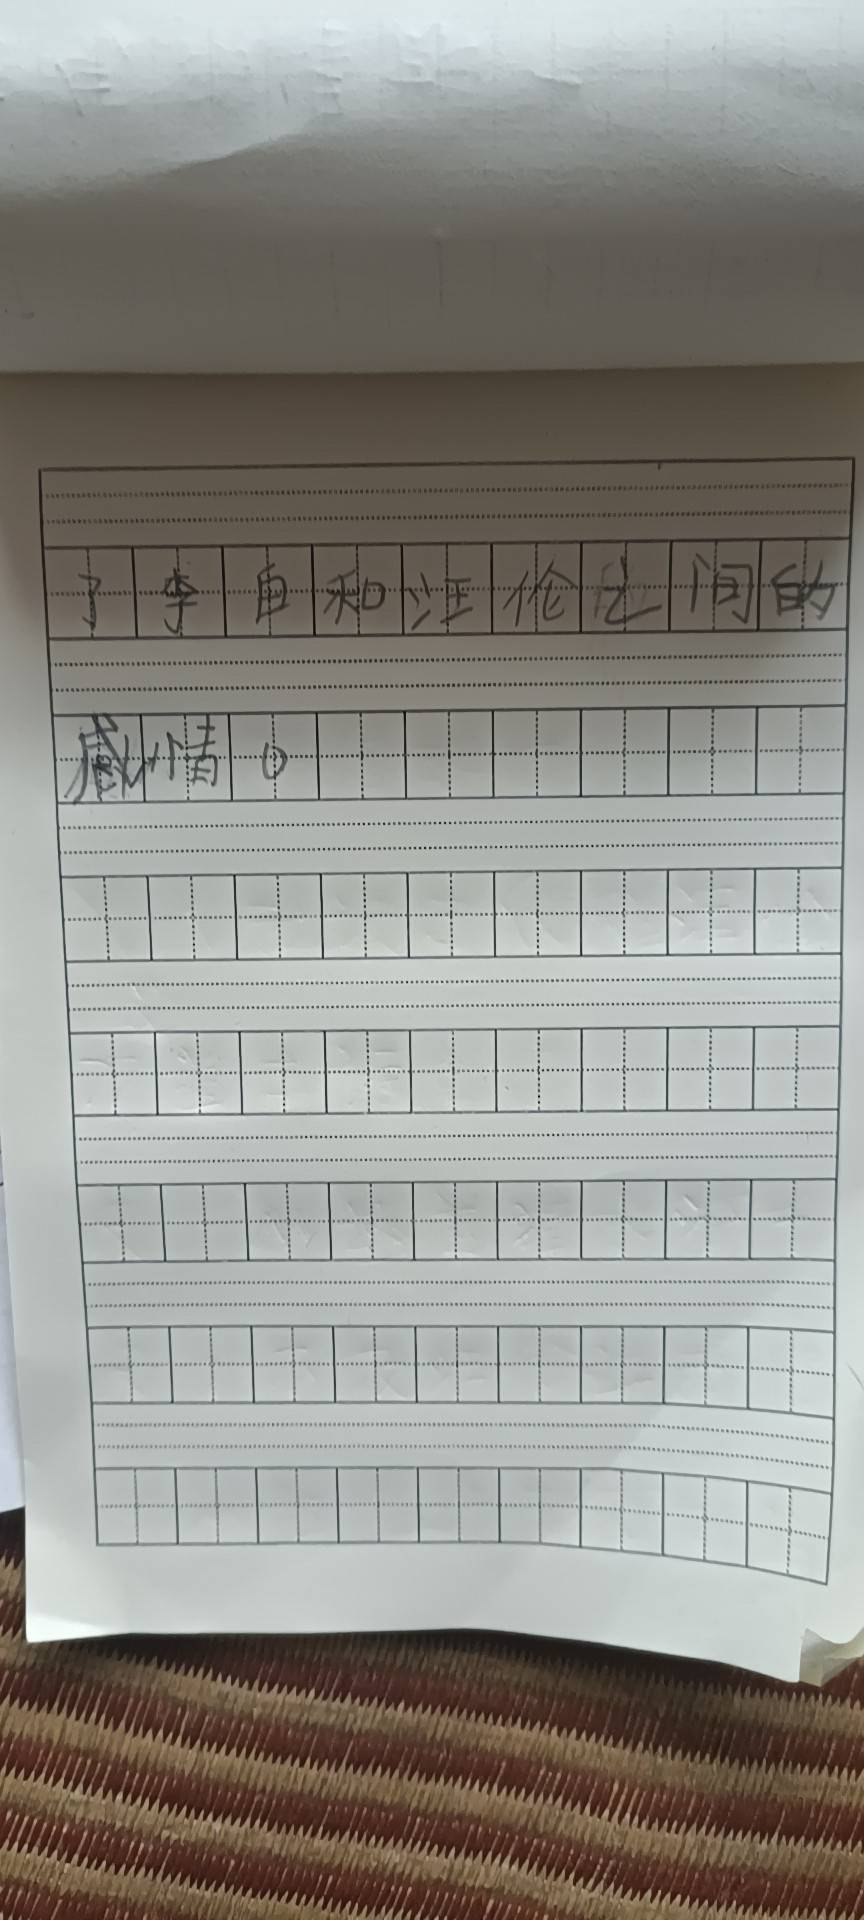 了李白和汪伦之间的
感情。